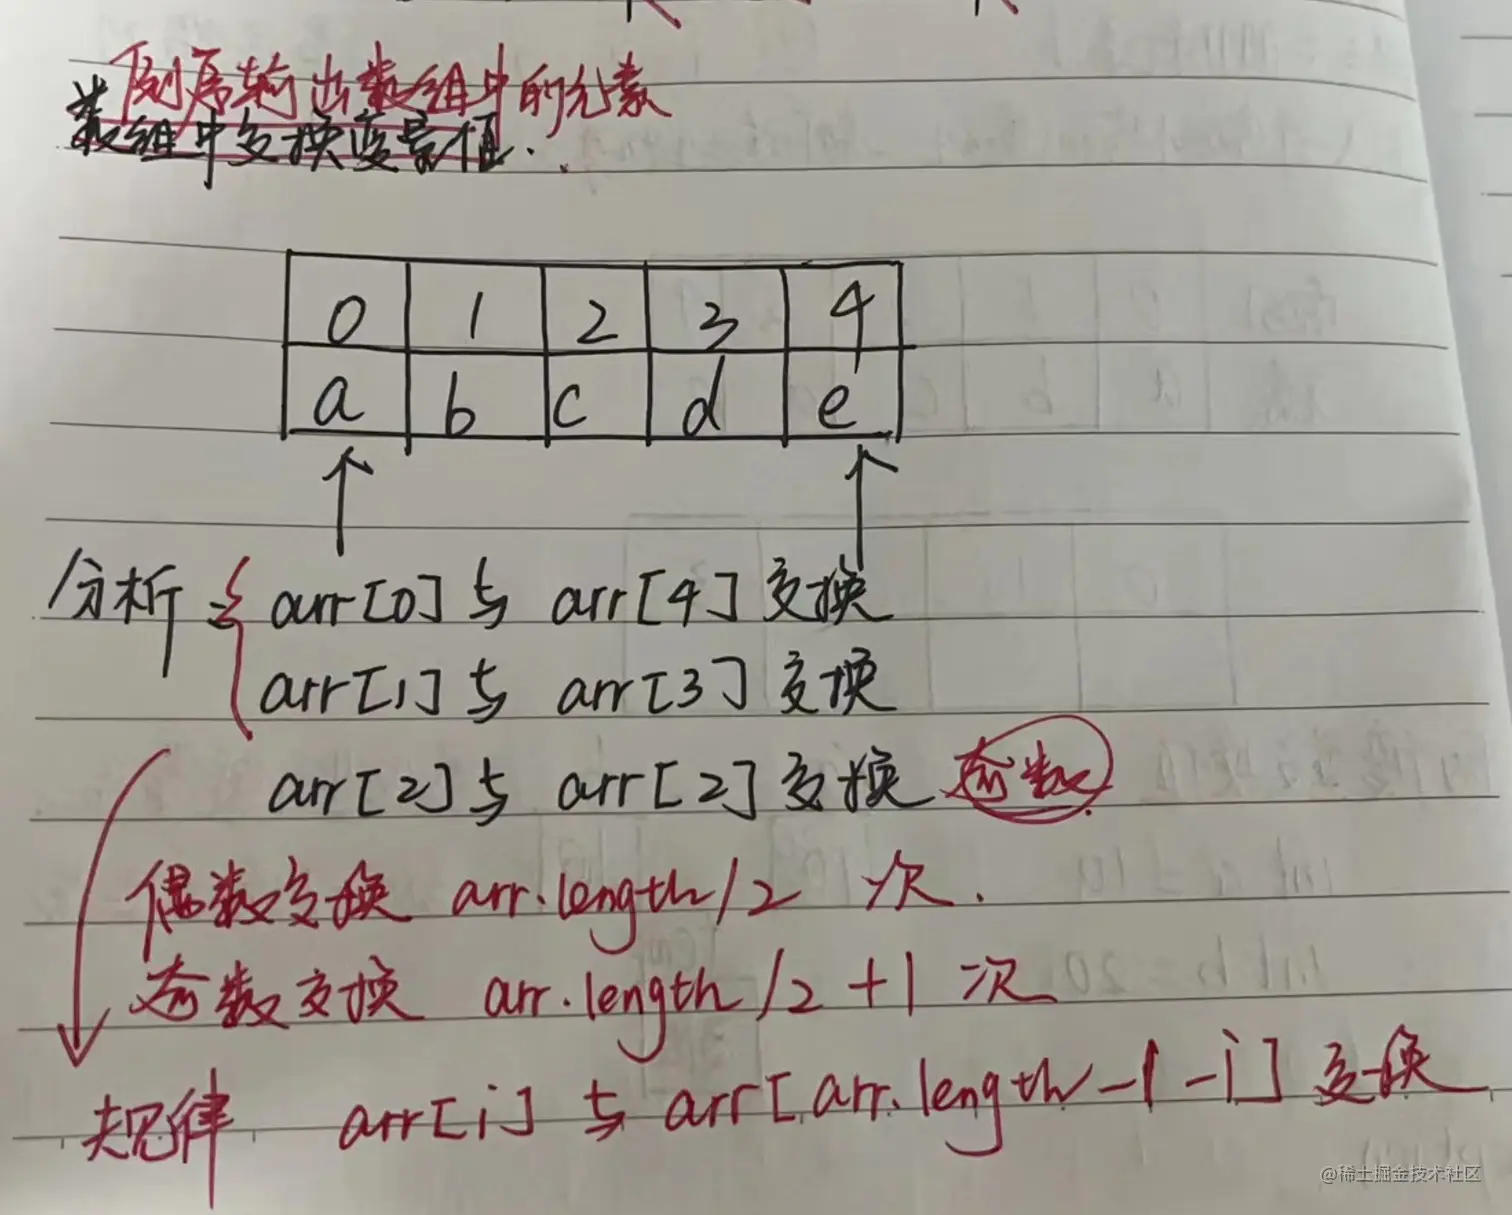 倒序输出数组中的元素
数组中交换变量值.
0 1 2 3 4
a b c d e
分析: arr[0]与 arr[4]交换
arr[1]与 arr[3]交换
arr[2]与 arr[2]交换 奇数
偶数交换 arr.length/2 次.
奇数交换 arr.length/2+1 次
规律 arr[i] 与 arr[arr.length-1-i]交换
@稀土掘金技术社区